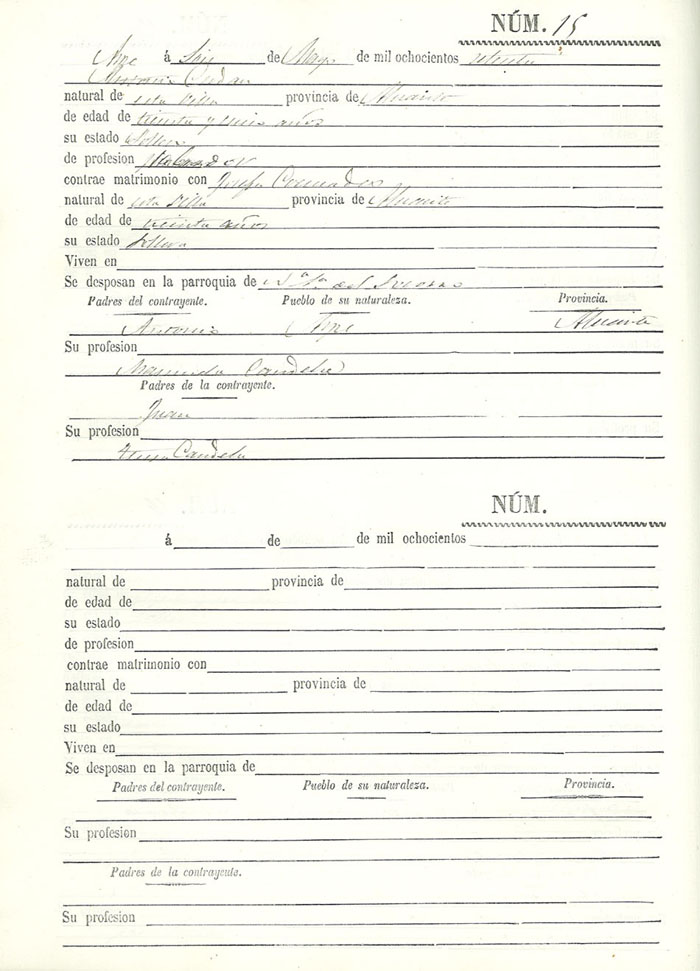 NÚM. 15
Aspe á Seis de Mayo de mil ochocientos setenta
Antonio Cerdan
natural de esta Villa provincia de Alicante
de edad de treinta y años
su estado Soltero
de profesion
contrae matrimonio con Josefa
natural de esta Villa provincia de Alicante
de edad de veinte años
su estado Soltera
Viven en
Se desposan en la parroquia de Nª Sª del Socorro
Padres del contrayente. Pueblo de su naturaleza. Provincia.
Antonio Aspe Alicante
Su profesion
Candela
Padres de la contrayente.
Juan
Su profesion
Candela
NÚM.
á de de mil ochocientos
natural de provincia de
de edad de
su estado
de profesion
contrae matrimonio con
natural de provincia de
de edad de
su estado
Viven en
Se desposan en la parroquia de
Padres del contrayente. Pueblo de su naturaleza. Provincia.
Su profesion
Padres de la contrayente.
Su profesion